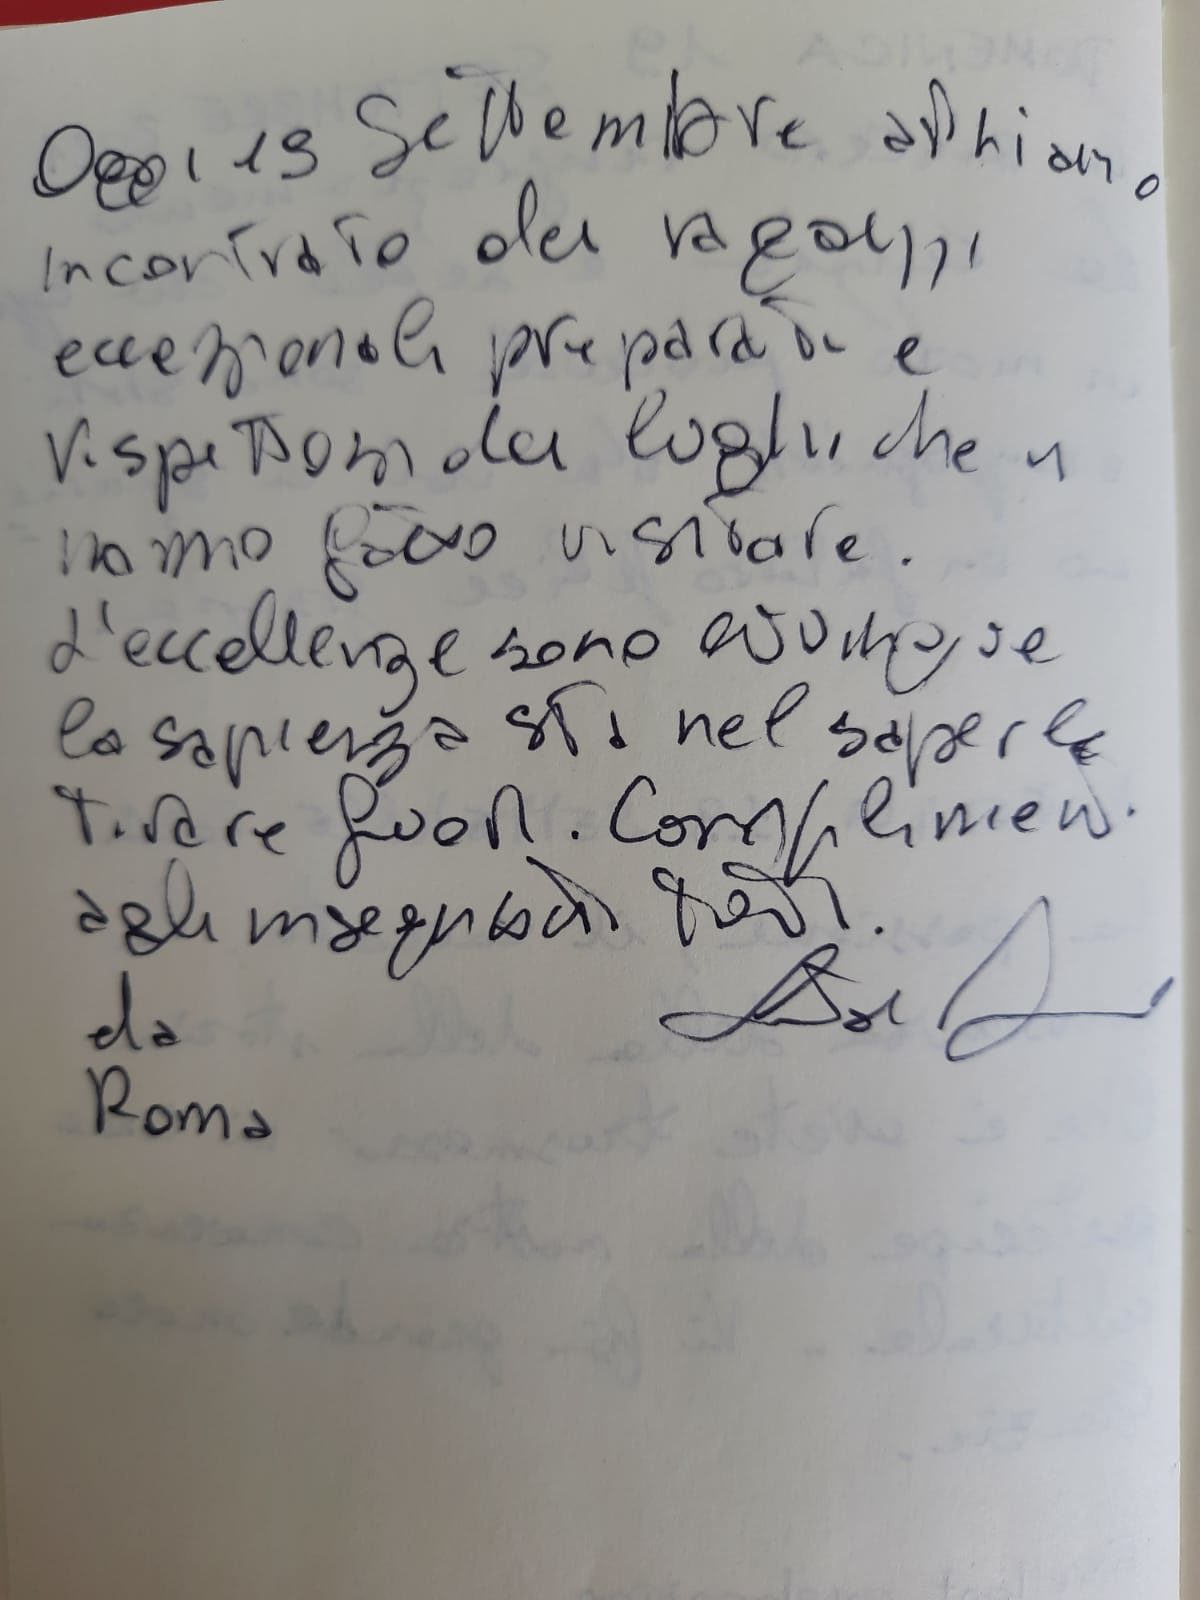 Oggi 19 Settembre abbiamo
incontrato dei ragazzi
eccezionali preparati e
rispettosi dei luoghi che ci
hanno fatto visitare.
L'eccellenze sono ovunque
la sapienza sta nel saperle
tirare fuori. Complimenti
agli insegnanti tutti.
da
Roma